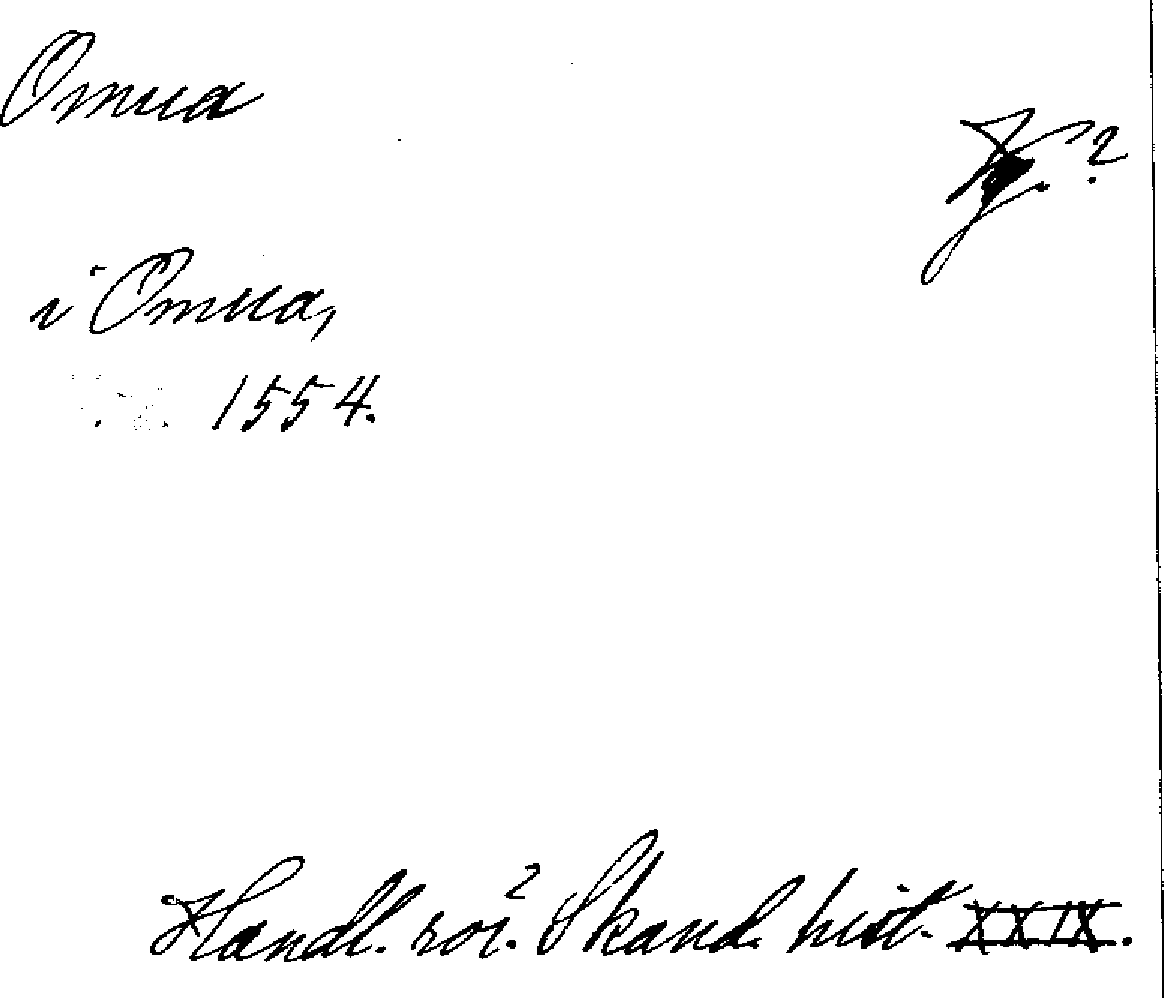 Omua
i Omua,
1554.
Handl. rör. Skand. hist. XXIX.